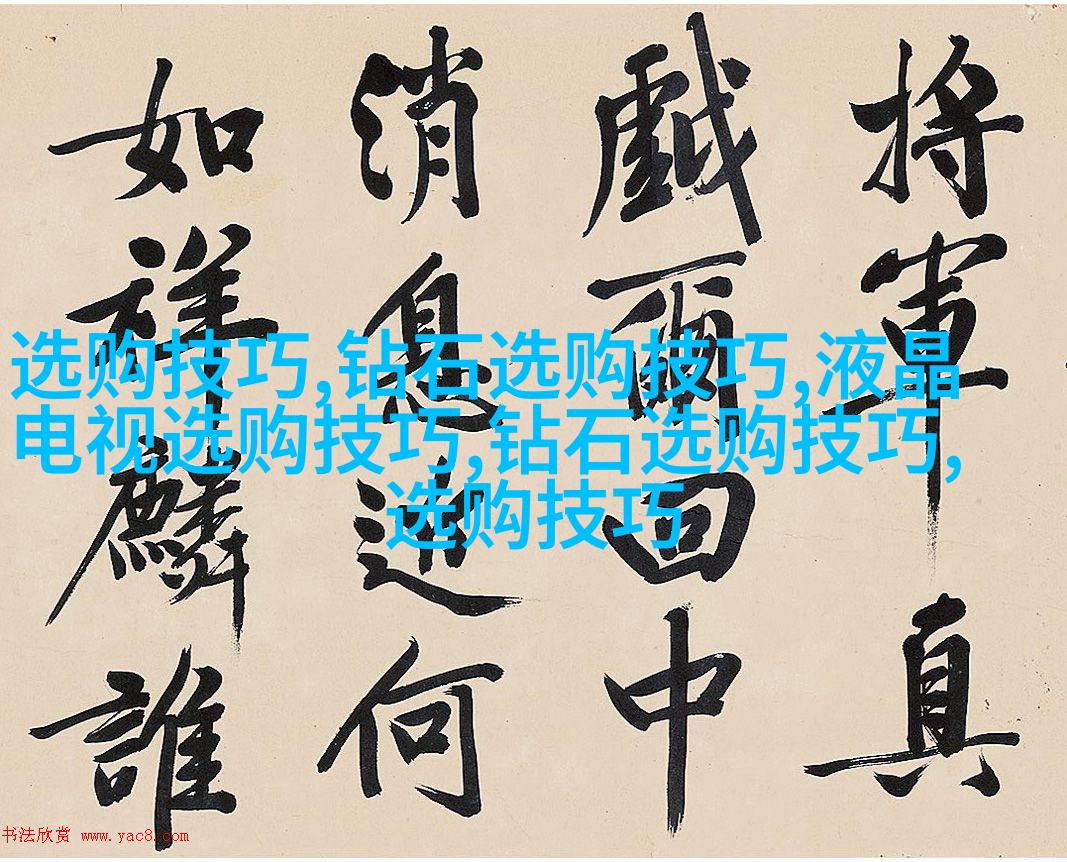 將軍真
戲爾回中
消息何
如祥麟誰
选购技巧,钻石选购技巧,液晶
电视选购技巧,钻石选购技巧,
选购技巧
书法欣赏 www.yac8.com